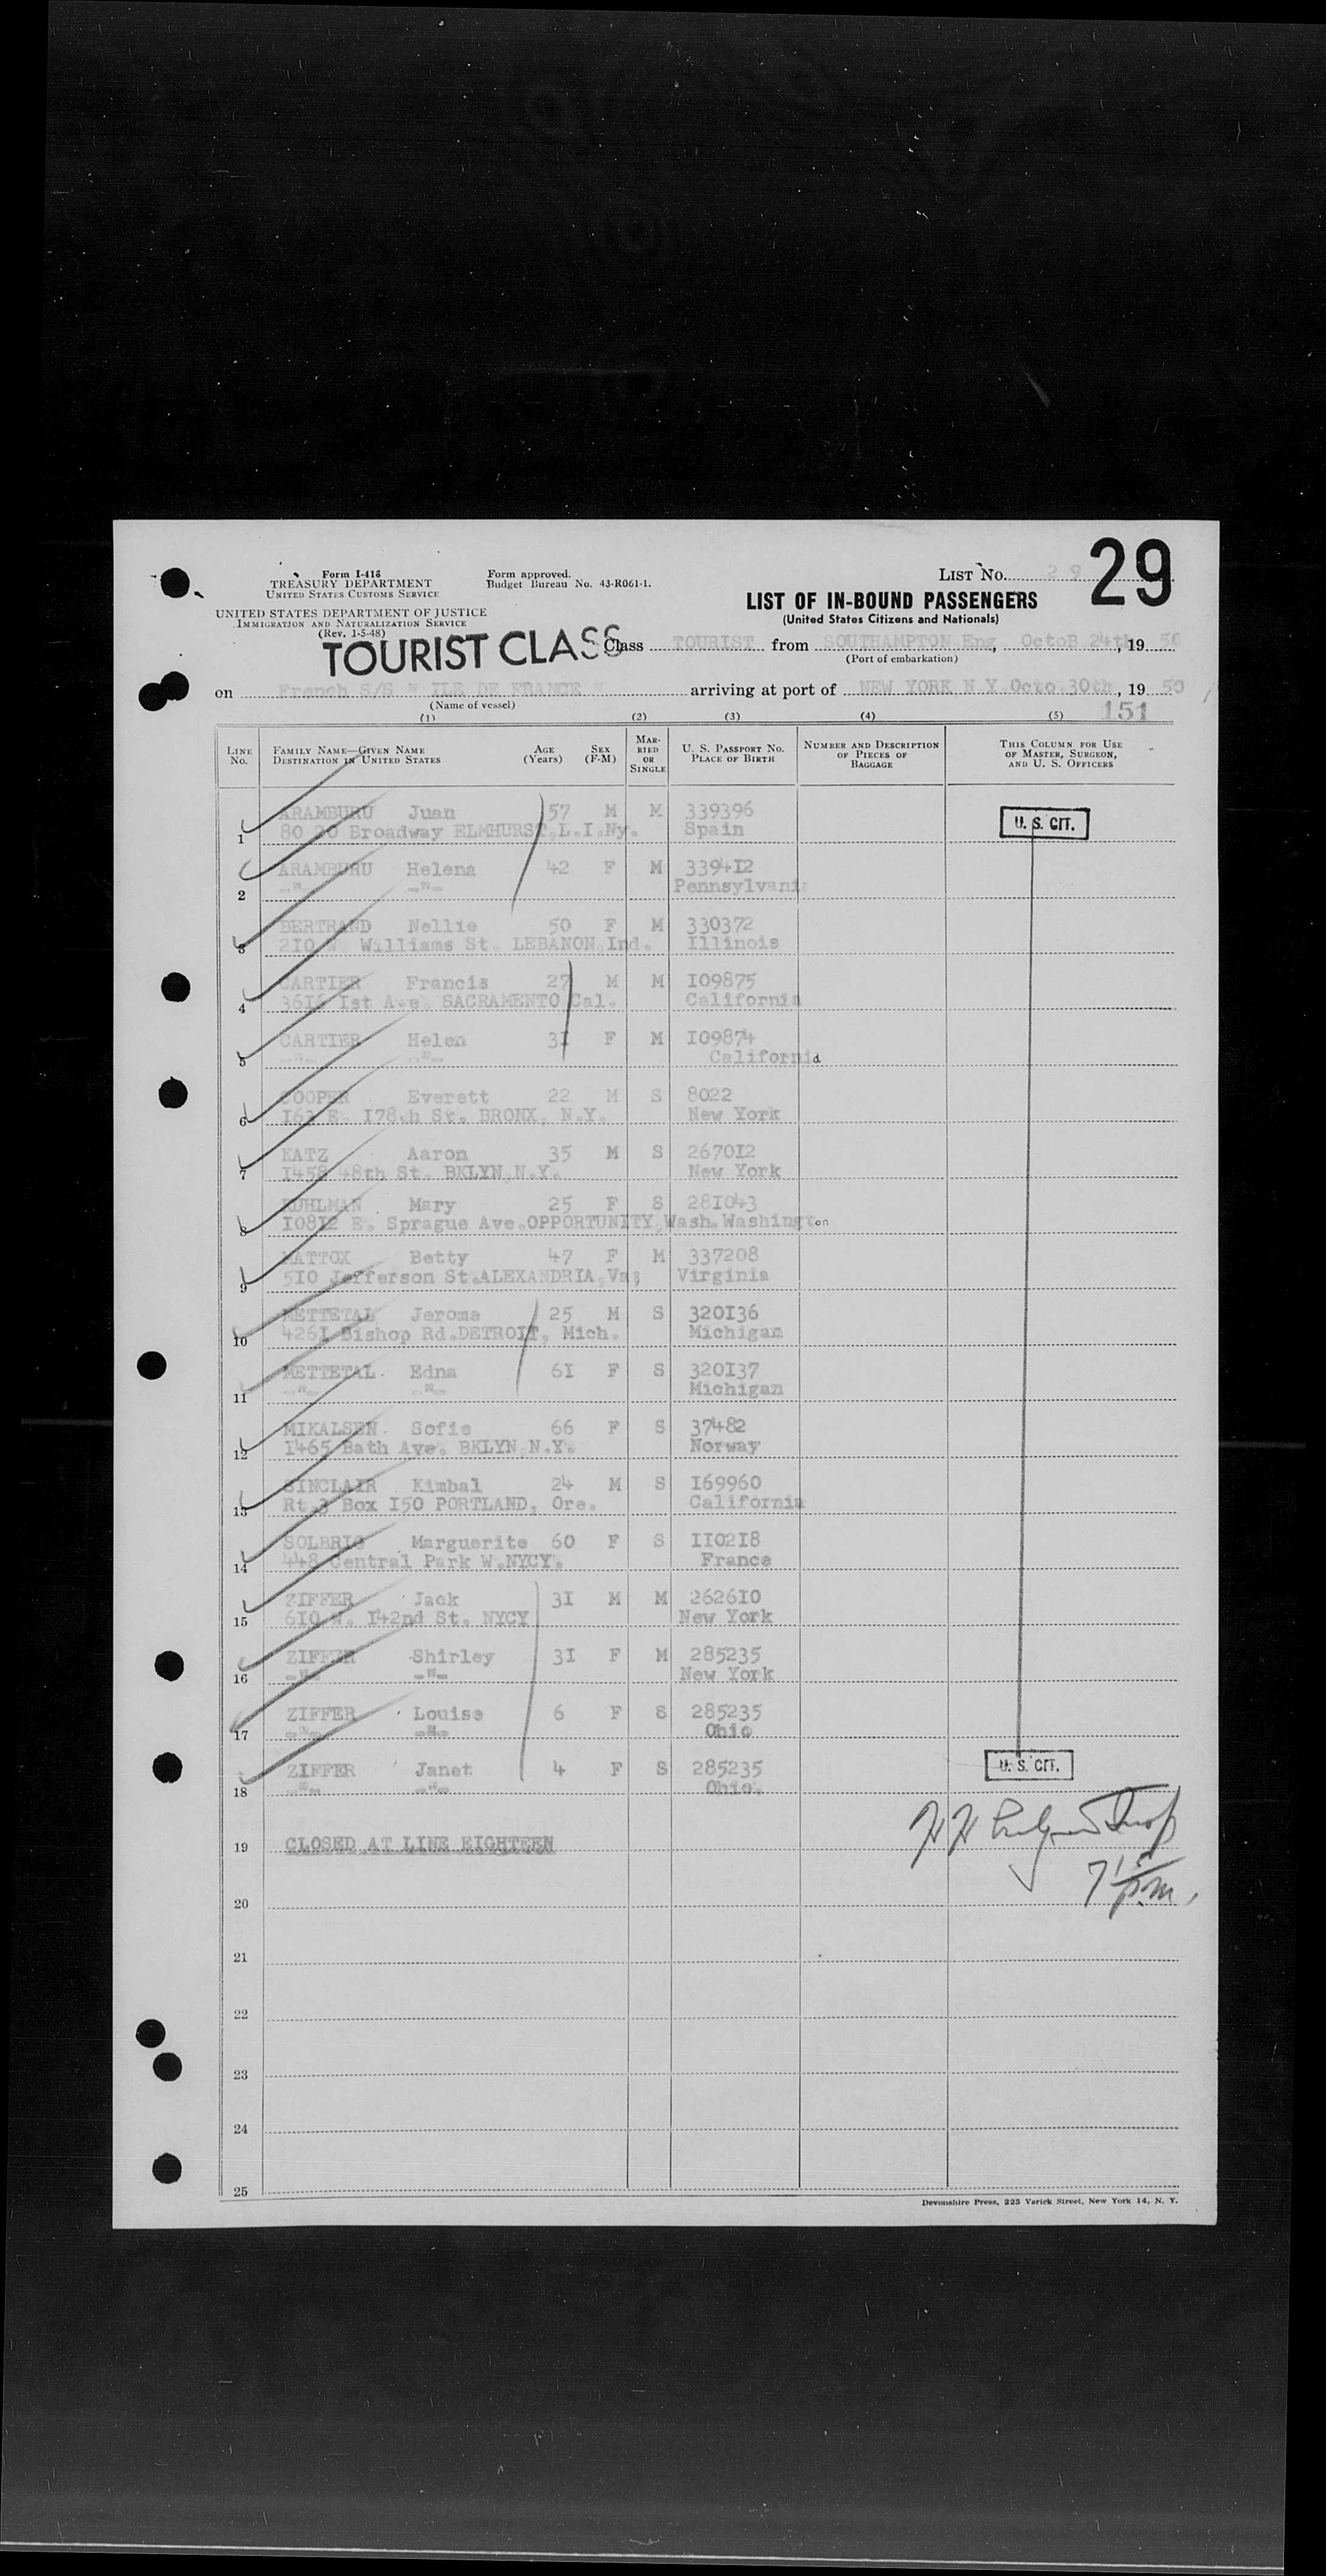 Form I-418
TREASURY DEPARTMENT
UNITED STATES CUSTOMS SERVICE
Form approved.
Budget Bureau No. 43-R061-1.
LIST No. 29
29
UNITED STATES DEPARTMENT OF JUSTICE
IMMIGRATION AND NATURALIZATION SERVICE
(Rev. 1-5-48)
LIST OF IN-BOUND PASSENGERS
(United States Citizens and Nationals)
TOURIST CLASS
Class TOURIST from SOUTHAMPTON Eng, OctoB 24th, 19 50
(Port of embarkation)
on French S/S " ILE DE FRANCE " arriving at port of NEW YORK N.Y. Octo. 30th, 19 50
(Name of vessel)
151
(1) (2) (3) (4) (5)
LINE No. FAMILY NAME—GIVEN NAME DESTINATION IN UNITED STATES AGE (Years) SEX (F-M) MARRIED OR SINGLE U. S. PASSPORT No. PLACE OF BIRTH NUMBER AND DESCRIPTION OF PIECES OF BAGGAGE THIS COLUMN FOR USE OF MASTER, SURGEON, AND U. S. OFFICERS
ARAMBURU Juan 57 M M 339396 U. S. CIT.
1 80 20 Broadway ELMHURST, L.I.Ny. Spain
ARAMBURU Helena 42 F M 339412
2 -"- -"- Pennsylvania
BERTRAND Nellie 50 F M 330372
3 210 Williams St. LEBANON Ind. Illinois
CARTIER Francis 27 M M 109875
4 3616 1st Ave. SACRAMENTO Cal. California
CARTIER Helen 31 F M 109874
5 -"- -"- California
COOPER Everett 22 M S 8022
6 163 E. 178th St. BRONX, N.Y. New York
KATZ Aaron 35 M S 267012
7 1458 48th St. BKLYN, N.Y. New York
KUHLMAN Mary 25 F S 281043
8 10812 E. Sprague Ave. OPPORTUNITY, Wash. Washington
MATTOX Betty 47 F M 337208
9 510 Jefferson St. ALEXANDRIA, Va; Virginia
METTETAL Jerome 25 M S 320136
10 4261 Bishop Rd. DETROIT, Mich. Michigan
METTETAL Edna 61 F S 320137
11 -"- -"- Michigan
MIKALSEN Sofie 66 F S 37482
12 1465 Bath Ave. BKLYN, N.Y. Norway
SINCLAIR Kimbal 24 M S 169960
13 Rt.3 Box 150 PORTLAND, Ore. California
SOLBRIG Marguerite 60 F S 110218
14 448 Central Park W. NYCY. France
ZIFFER Jack 31 M M 262610
15 610 W. 142nd St. NYCY New York
ZIFFER Shirley 31 F M 285235
16 -"- -"- New York
ZIFFER Louise 6 F S 285235
17 -"- -"- Ohio
ZIFFER Janet 4 F S 285235 U. S. CIT.
18 -"- -"- Ohio.
19 CLOSED AT LINE EIGHTEEN
7 15 p.m.
20
21
22
23
24
25
Devonshire Press, 225 Varick Street, New York 14, N. Y.